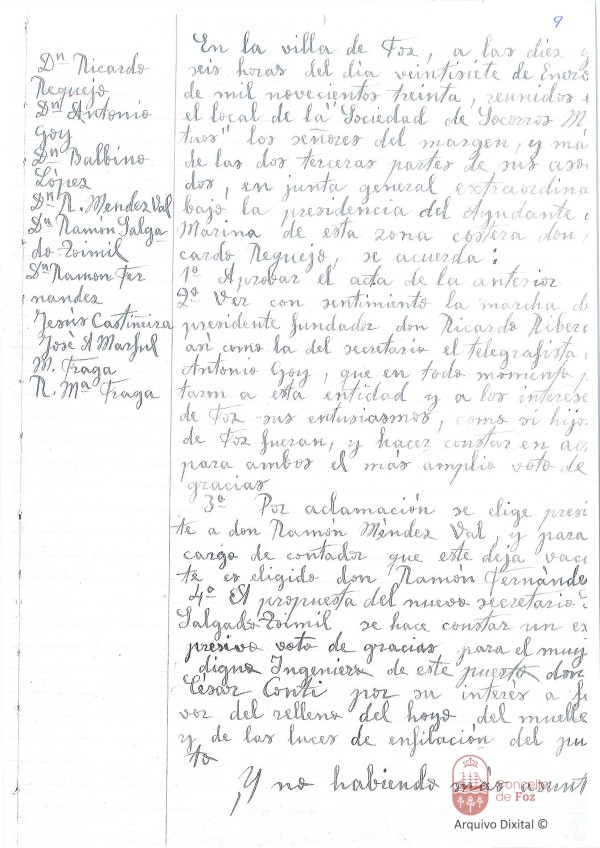 9
Dn Ricardo
Requejo
Dn Antonio
Goy
Dn Balbino
López
Dn R. Mendez Val
Dn Ramon Salga-
do-Toimil
Dn Ramon Fer
nandez
Jesús Castiñeira
José A Marful
M. Fraga
R. Mª Fraga
En la villa de Foz, a las diez y
seis horas del dia veintisiete de Enero
de mil novecientos treinta, reunidos e
el local de la "Sociedad de Socorros M
tuos" los señores del margen, y má
de las dos terceras partes de sus aso
dos, en junta general extraordina
bajo la presidencia del Ayudante d
Marina de esta zona costera don
cardo Requejo, se acuerda:
1º Aprobar el acta de la anterior
2º Ver con sentimiento la marcha d
presidente fundador don Ricardo
asi como la del secretario el telegrafista
Antonio Goy, que en todo momento p
taron a esta entidad y a los interese
de Foz sus entusiasmos, como si hijo
de Foz fueran, y hacer constar en ac
para ambos el más amplio voto de
gracias
3º Por aclamación se elige presi
te a don Ramón Méndez Val, y para
cargo de contador que este deja vaca
te es eligido don Ramón Fernánde
4º A propuesta del nuevo secretario
Salgado-Toimil se hace constar un ex
presivo voto de gracias para el muy
digno Ingeniero de este puerto don
César Conti por su interés a fa
vor del relleno del hoyo del muelle
y de las luces de enfilación del pu
to
Y no habiendo más asunt
Concello
de Foz
Arquivo Dixital ©